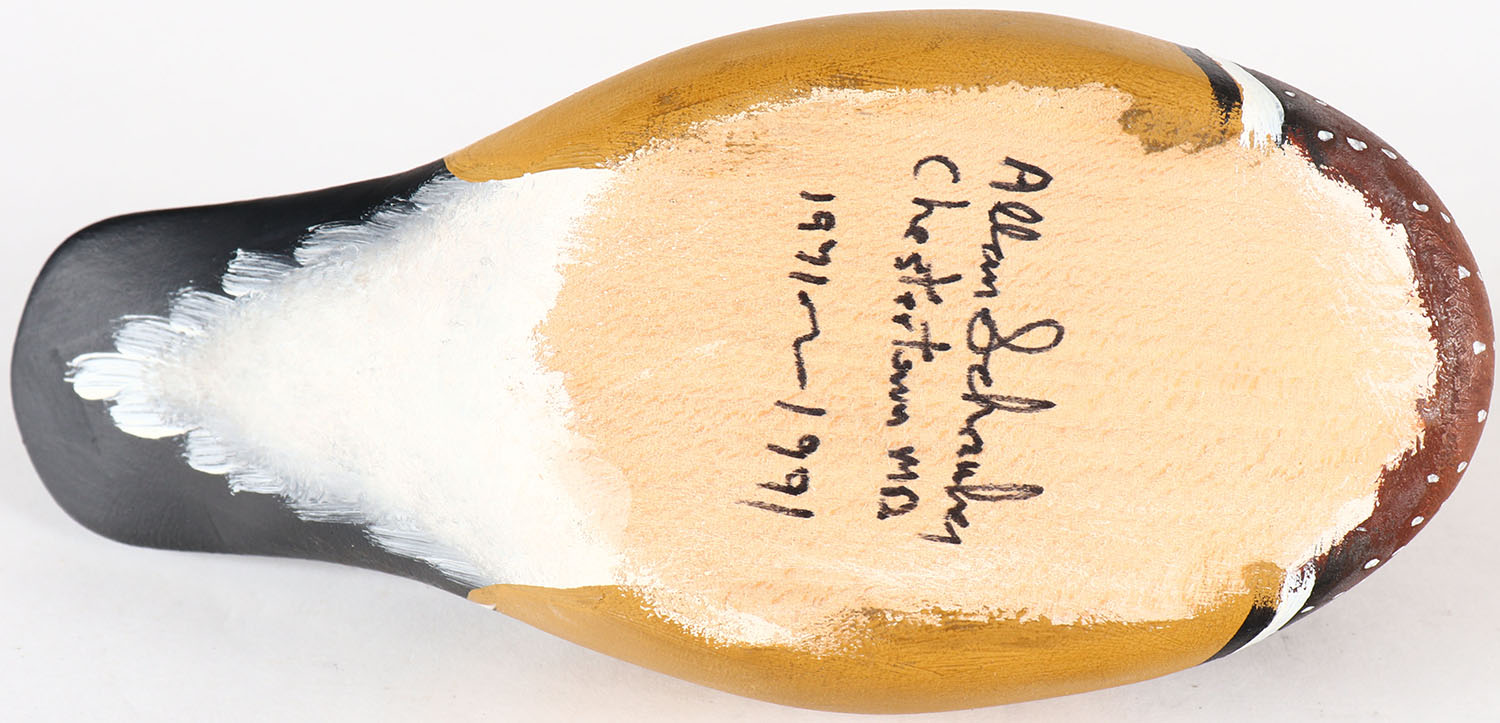 Allan Schauber
Chestertown MD
1971 - 1991